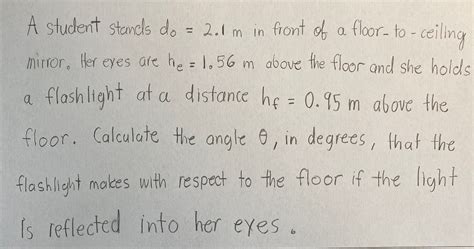 A student stands do = 2.1 m in front of a floor-to-ceiling
mirror. Her eyes are he = 1.56 m above the floor and she holds
a flashlight at a distance hf = 0.95 m above the
floor. Calculate the angle θ, in degrees, that the
flashlight makes with respect to the floor if the light
Is reflected into her eyes.